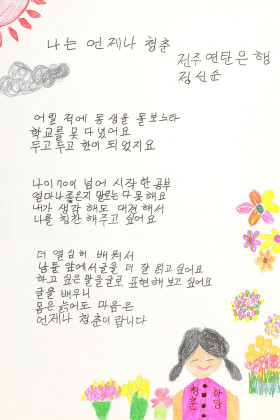 나는 언제나 청춘
전주 연탄은행
정선순
어릴 적에 동생을 돌보느라
학교를 못 다녔어요
두고 두고 한이 되었지요
나이 70이 넘어 시작한 공부
얼마나 좋은지 말로는 다 못해요
내가 생각해도 대견해서
나를 칭찬 해주고 싶어요
더 열심히 배워서
남들 앞에서 글을 더 잘 읽고 싶어요
하고 싶은 말을 글로 표현해 보고 싶어요
글을 배우니
몸은 늙어도 마음은
언제나 청춘이 랍니다
청춘
학당